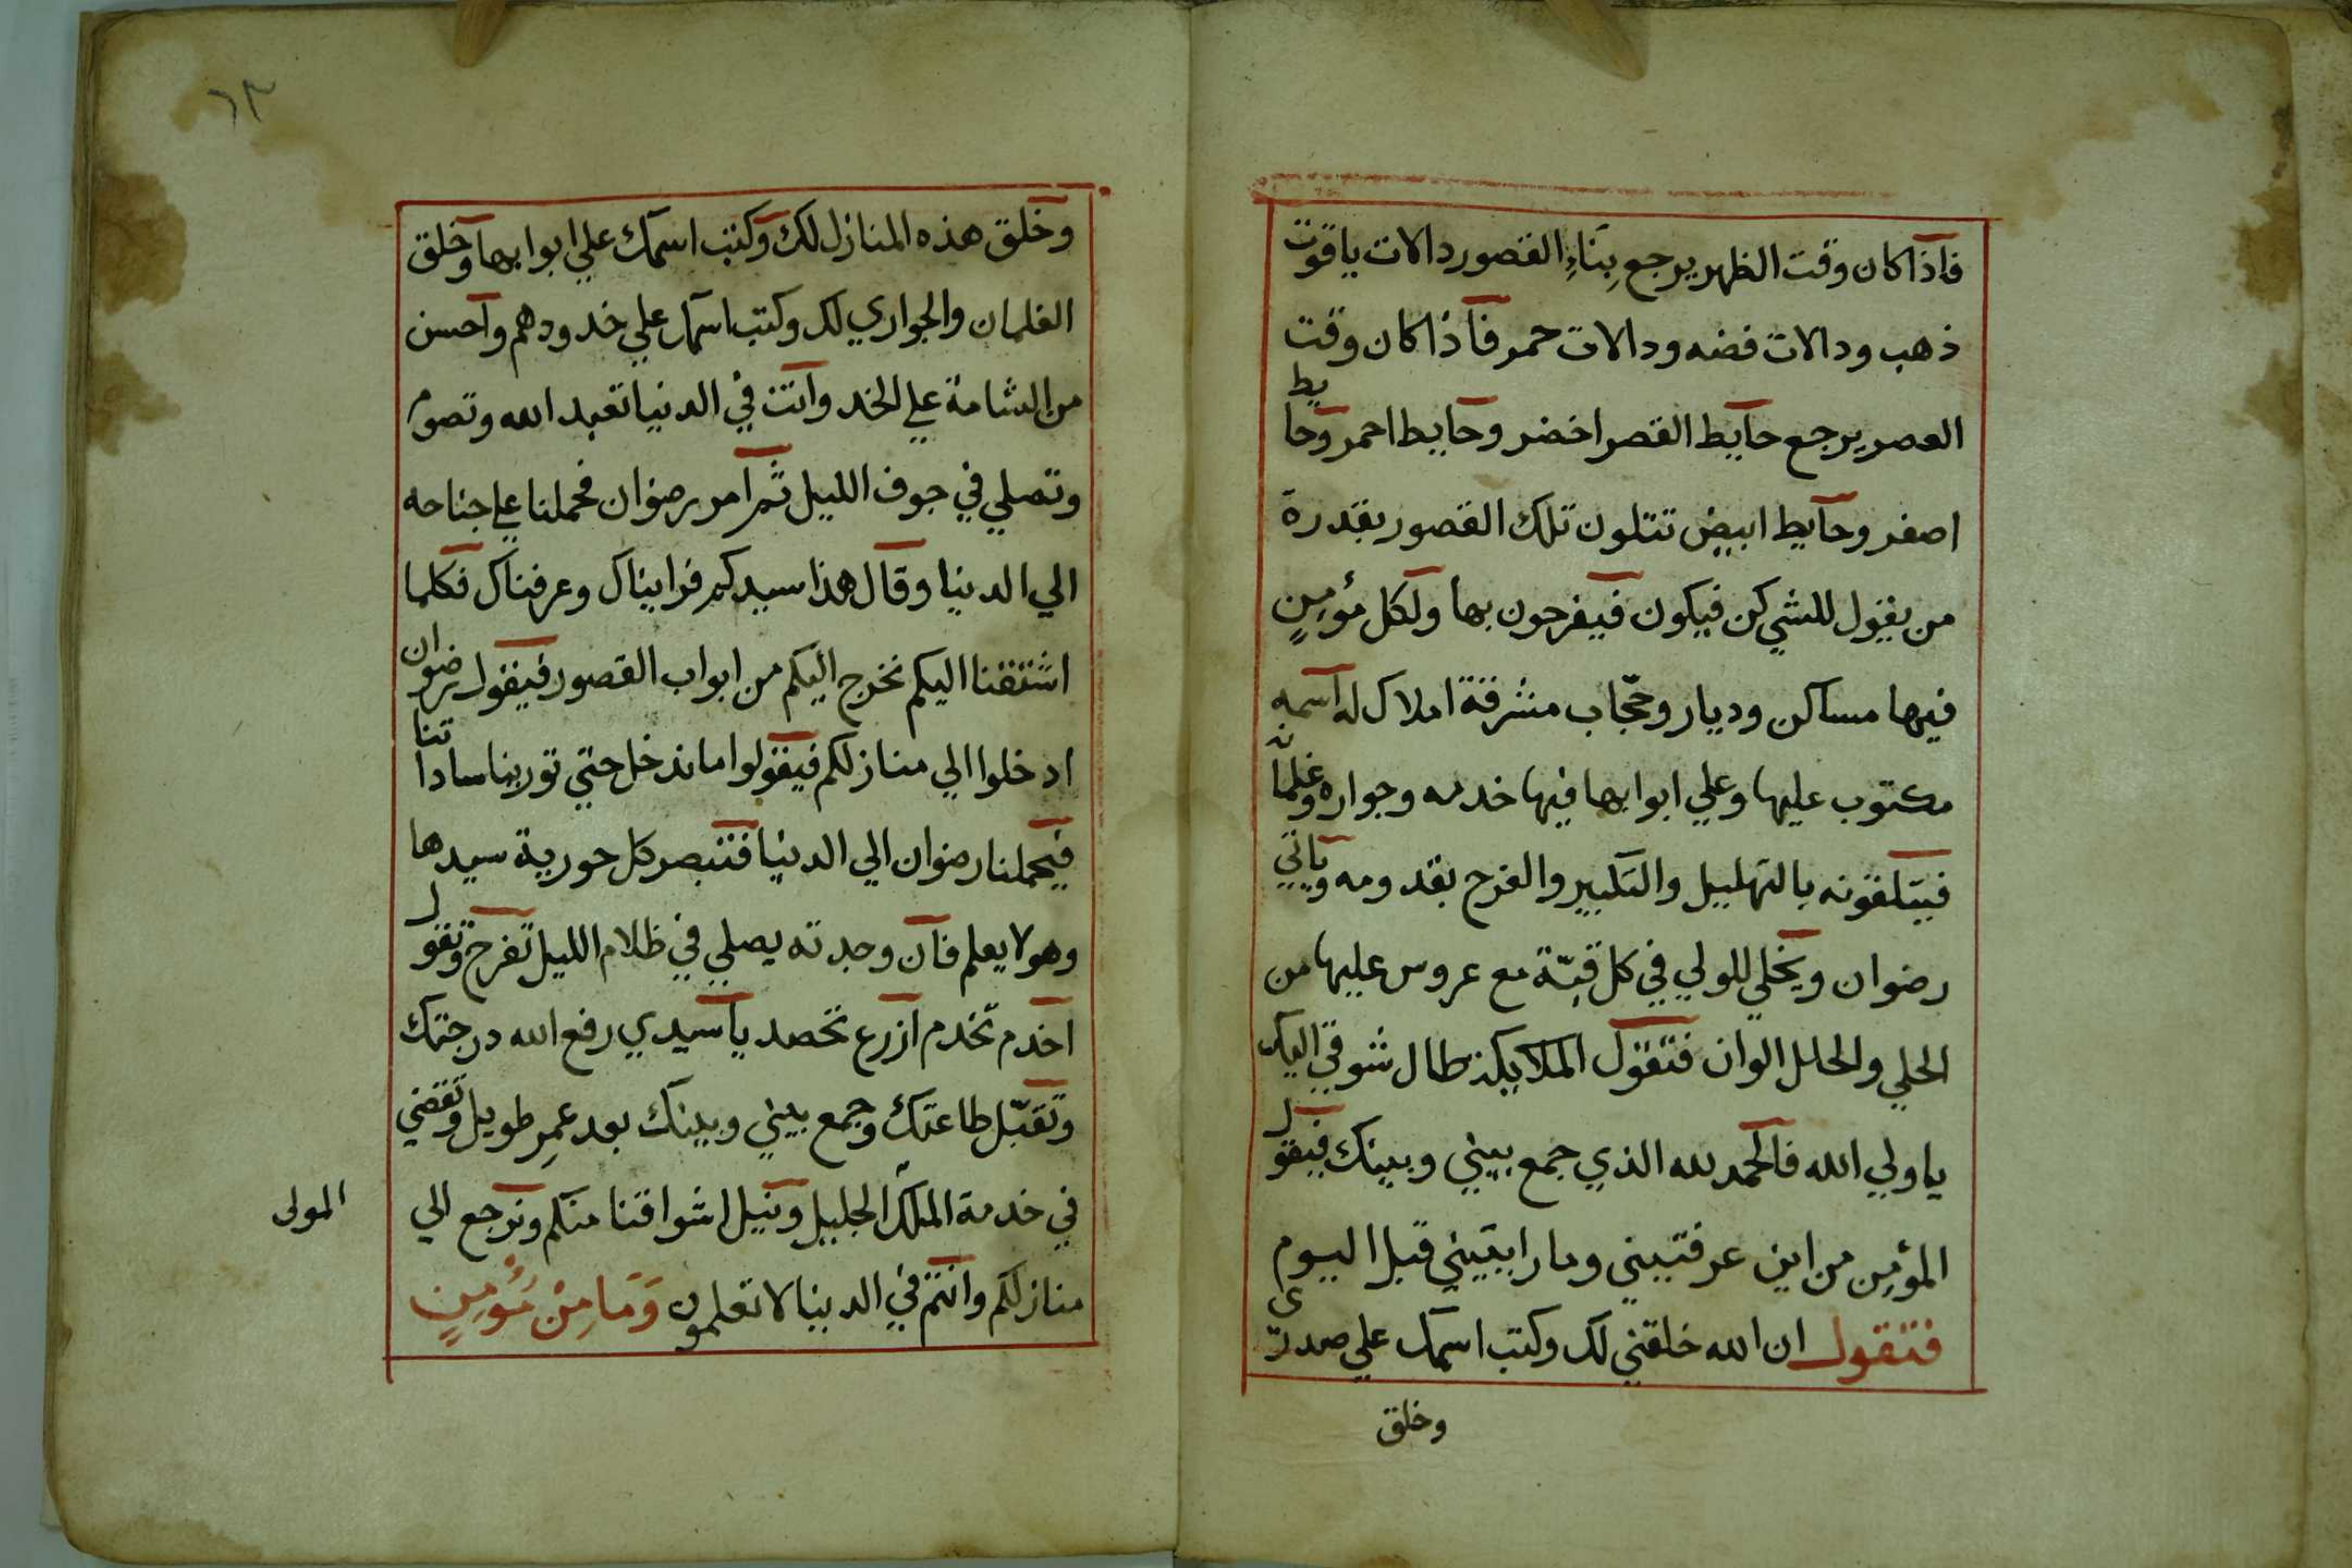 فاذا كان وقت الظهر يرجع بِنَاءِ القصور دالات ياقوت
ذهب ودالات فضه ودالات حمر فاذا كان وقت
العصر يرجع حايط القصر اخضر وحايط احمر وحايط
اصفر وحايط ابيض تتلون تلك القصور بقدرة
من يقول للشي كن فيكون فيفرحون بها ولكل مؤمِنٍ
فيها مساكن وديار وحجّاب مشرفة املاك له اسمه
مكتوب عليها وعلي ابوابها فيها خدمه وجواره وغلمانه
فيتلقونه بالتهليل والتكبير والفرح بقدومه وياتي
رضوان ويخلي للولي في كل قبّة مع عروس عليها من
الحلي والحلل الوان فتقول الملايكة طال شوقي اليك
يا ولي الله فالحمد لله الذي جمع بيني وبينك فيقول
المؤمِن من اين عرفتيني وما رايتيني قبل اليوم
فتقول ان الله خلقني لك وكتب اسمك علي صدري
وخلق
٦٣
وخلق هذه المنازل لك وكتب اسمك علي ابوابها وخلق
الغلمان والجواري لك وكتب اسمك علي خدودهم واحسن
من الشامة علي الخد وانت في الدنيا تعبد الله وتصوم
وتصلي في جوف الليل ثم امر رضوان فحملنا علي جناحه
الي الدنيا وقال هذا سيدكم فرايناك وعرفناك فكلما
اشتقنا اليكم نخرج اليكم من ابواب القصور فيقول رضوان
ادخلوا الي منازلكم فيقولوا ما ندخل حتي تورينا ساداتنا
فيحملنا رضوان الي الدنيا فتبصر كل حورية سيدها
وهو لا يعلم فان وجدته يصلي في ظلام الليل تفرح وتقول
اخدم تخدم ازرع تحصد يا سيدي رفع الله درجتك
وتقبّل طاعتك وجمع بيني وبينك بعد عمِر طويل وتقضي
في خدمة الملك الجليل ونيل اشواقنا منكم ونرجع الي
منازلكم وانتم في الدنيا لا تعلمون وَمَا مِنْ مُؤمِنٍ
المولى